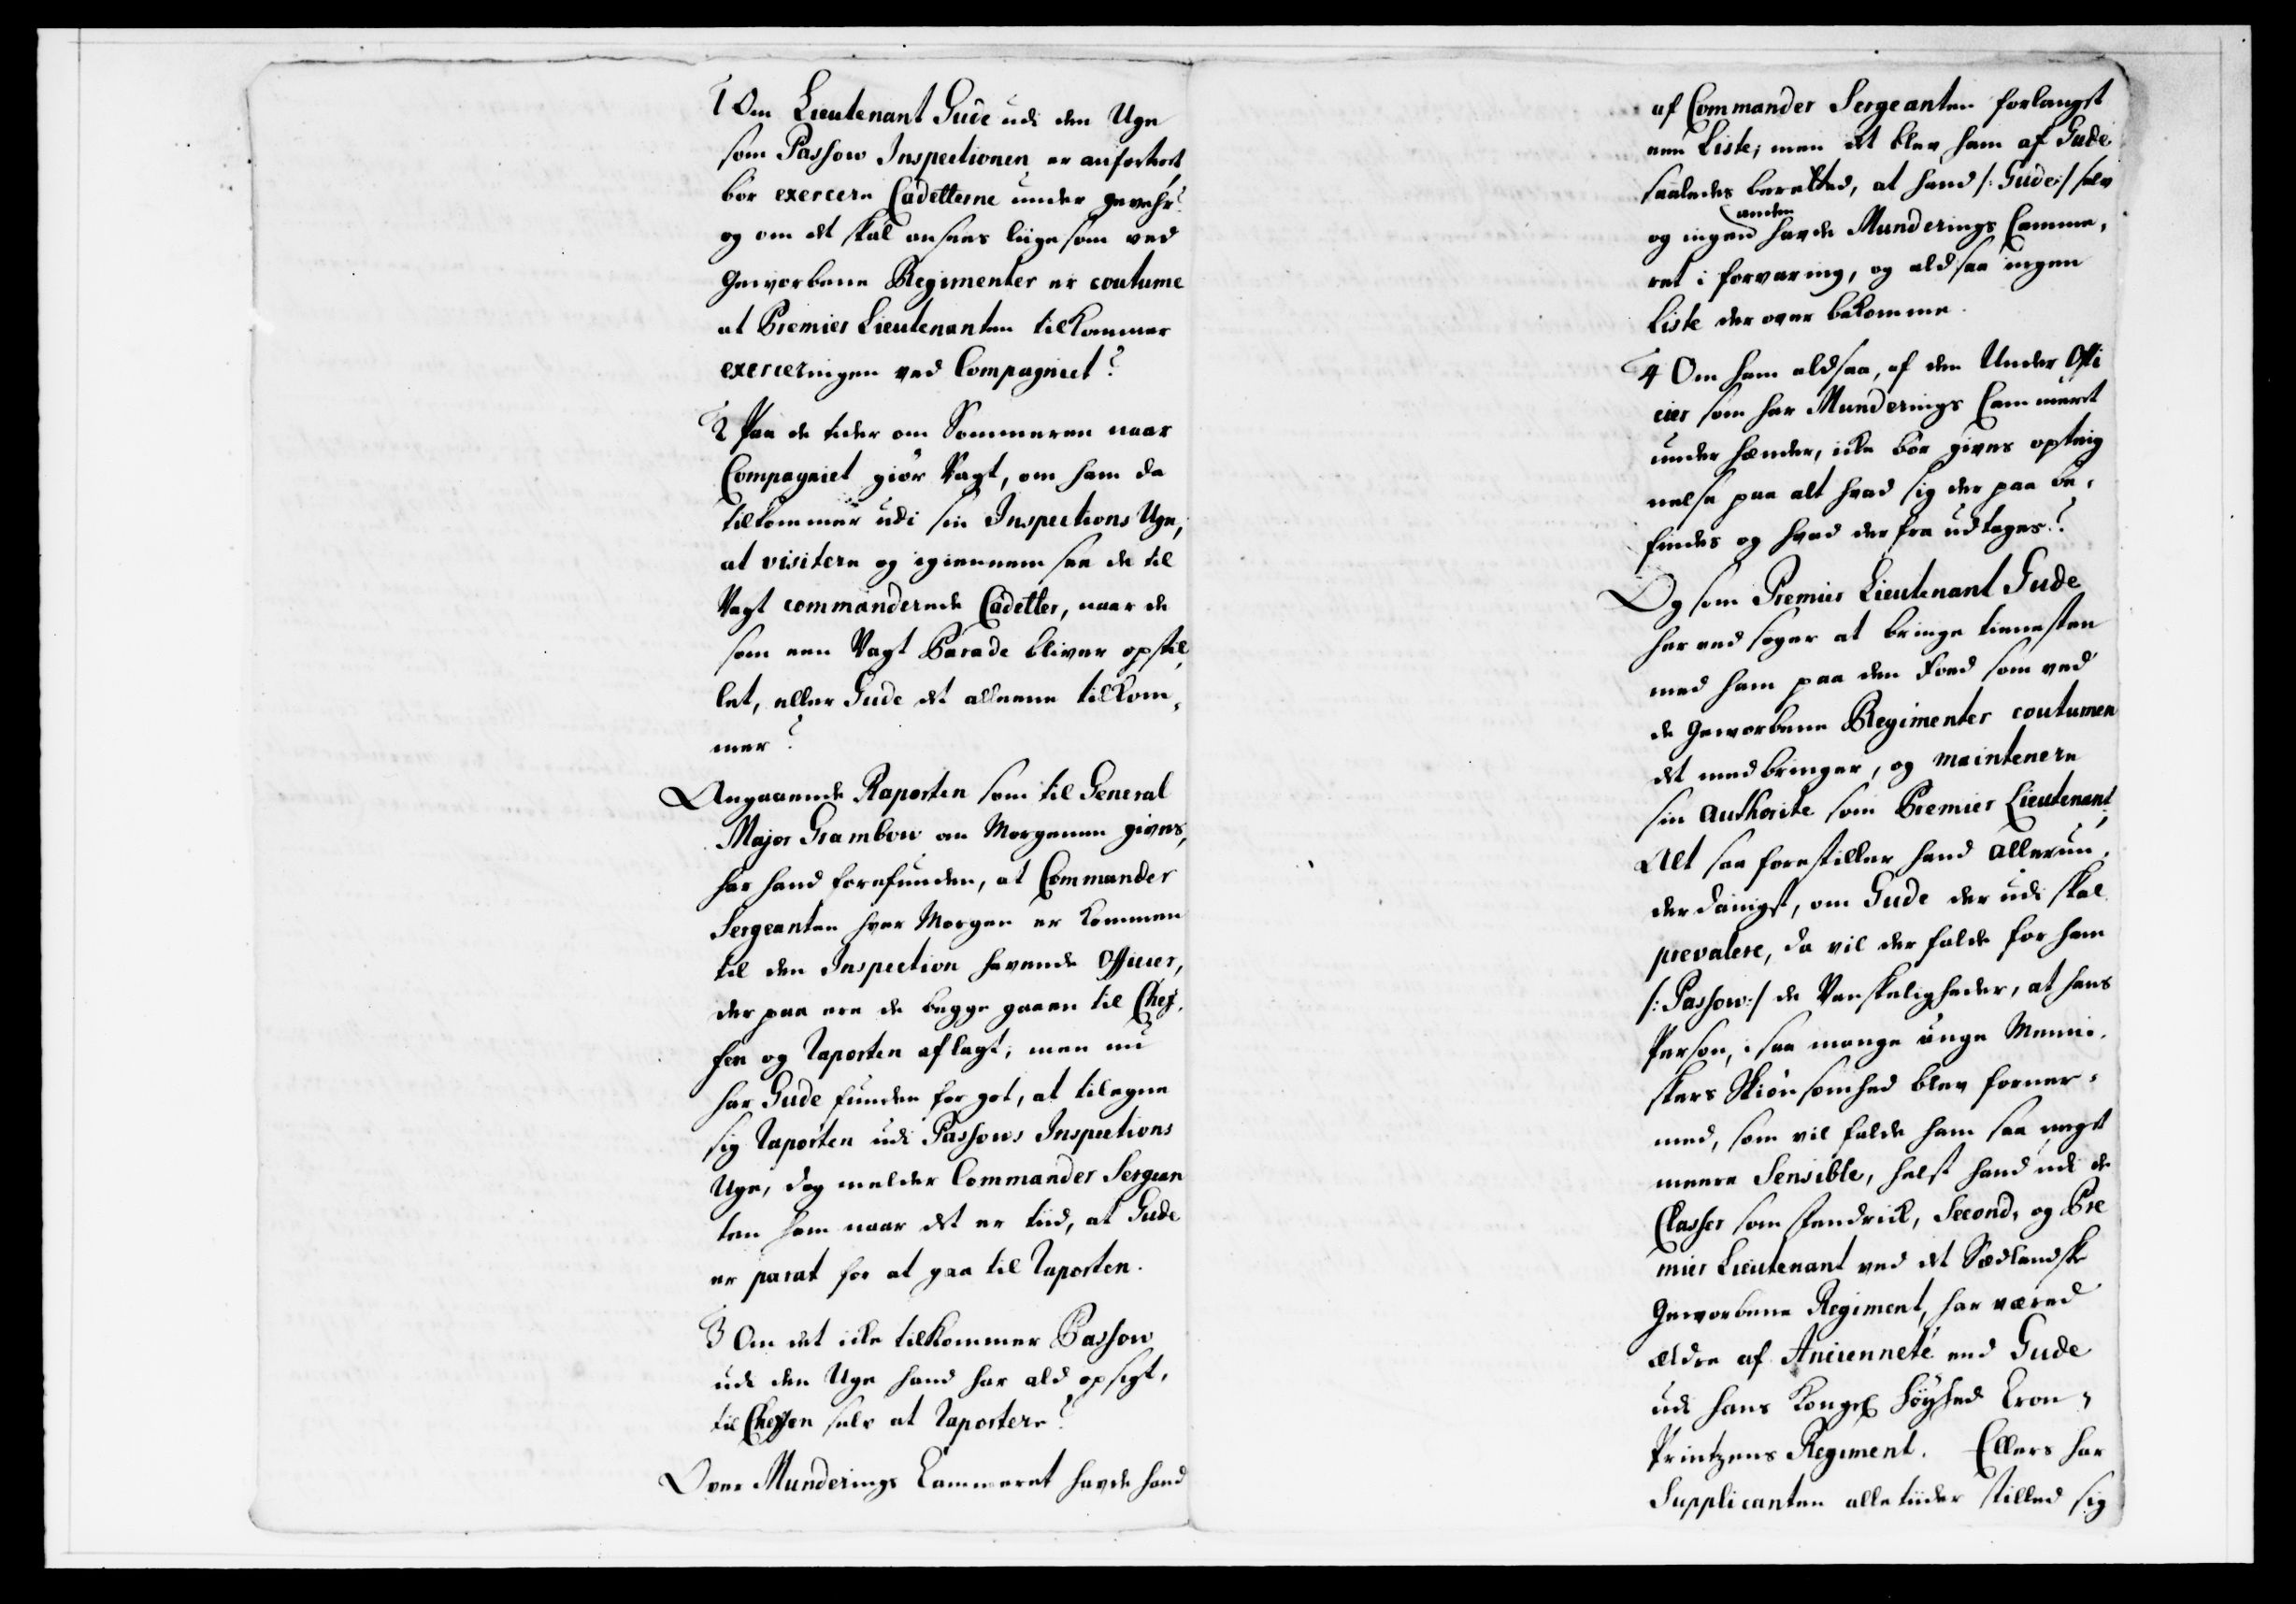 1 Om Lieutenant Gude udi den Uge
som Passow Inspectionen er anfortroet,
bör exercere Cadetterne under gevehr?
og om det skal ansees liige som ved
Geworbene Regimenter er coutume
at Premier Lieutenanten tilkommer
exerceringen ved Compagniet?
2 Paa de tider om Sommeren naar
Compagniet giör Vagt, om ham da
tilkommer udi sin Inspections Uge,
at visitere og igiennem see de til
Vagt commanderede Cadetter, naar de
som een Vagt Parade bliver opstil,
let, eller Gude det alleene tilkom,
mer?
Angaaende Raporten som til General
Major Grambow om Morgenen gives,
har hand forefunden, at Commander
Sergeanten hver Morgen er kommen
til den Inspection havende Officier,
der paa ere de begge gaaen til Chef,
fen og Raporten aflagt; men nu
har Gude funden for got, at tilegne
sig Raporten udi Passows Inspections
Uge, dog melder Commander Sergean
ten ham naar det er tiid, at Gude
er parat for at gaa til Raporten.
3 Om det icke tilkommer Passow
udi den Uge hand har ald opsigt,
til Cheffen selv at Raportere?
Over Munderings Cammeret havde hand
af Commander Sergeanten forlangt
een Liste; men det blev ham af Gude
saaledes beretted, at hand /: Gude :/ selv
anden
og ingen havde Munderings Camme,
ret i forvaring, og aldsaa ingen
Liste der over bekomme.
4 Om ham aldsaa, af den Under Offi
cier som har Munderings Cammeret
under hænder, icke bör gives opteig
nelse paa alt hvad sig der paa be,
findes og hvad der fra udtages?
Og som Premier Lieutenant Gude
her ved söger at bringe tienesten
med ham paa den Foed som ved
de Geworbene Regimenter coutumen
det medbringer, og maintenere
sin Authorite som Premier Lieutenant;
Alt saa forestiller hand allerun,
derdanigst, om Gude der udi skal
prevalere, da vil der falde for ham
/: Passow :/ de Vanskeligheder, at hans
Person, i saa mange unge Menni,
skers Skiönsomhed blev forner,
med, som vil falde ham saa meget
meere Sensible, helst hand udi de
Classer som Fendrick, Second, og Pre
mier Lieutenant ved det Siellandske
Geworbene Regiment, har været
ældre af Ancienneté end Gude
udi hans Kongel Höyhed Cron,
Printzens Regiment. Ellers har
Supplicanten alle tiider stilled sig